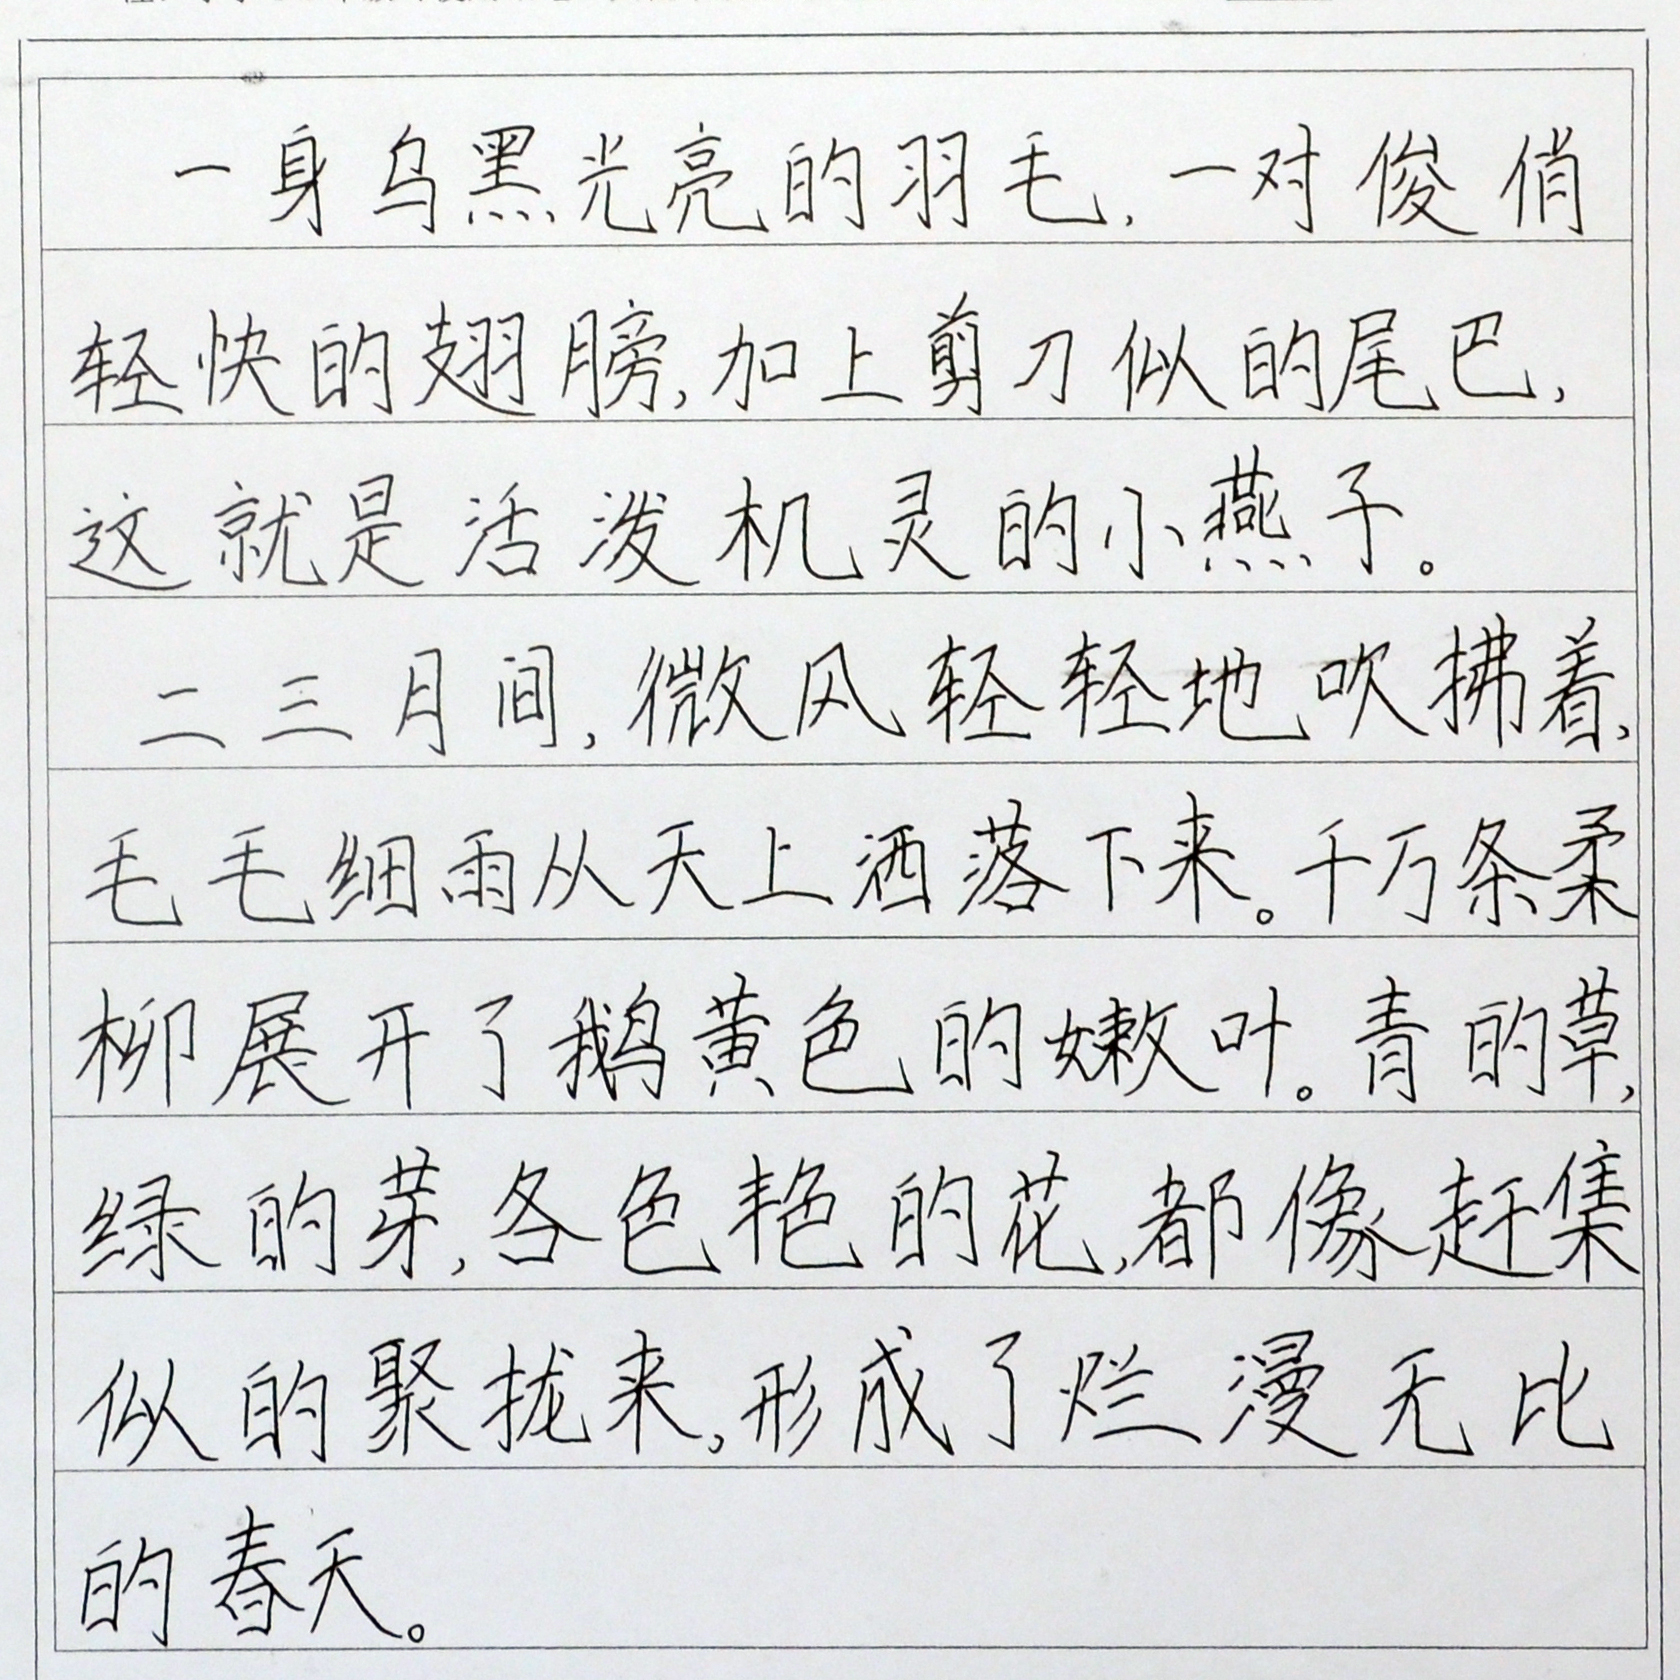 一身乌黑光亮的羽毛,一对俊俏
轻快的翅膀,加上剪刀似的尾巴,
这就是活泼机灵的小燕子。
二三月间,微风轻轻地吹拂着,
毛毛细雨从天上洒落下来。千万条柔
柳展开了鹅黄色的嫩叶。青的草,
绿的芽,各色艳的花,都像赶集
似的聚拢来,形成了烂漫无比
的春天。